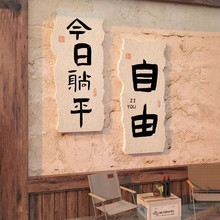 今日躺平
自由
IS
YOU